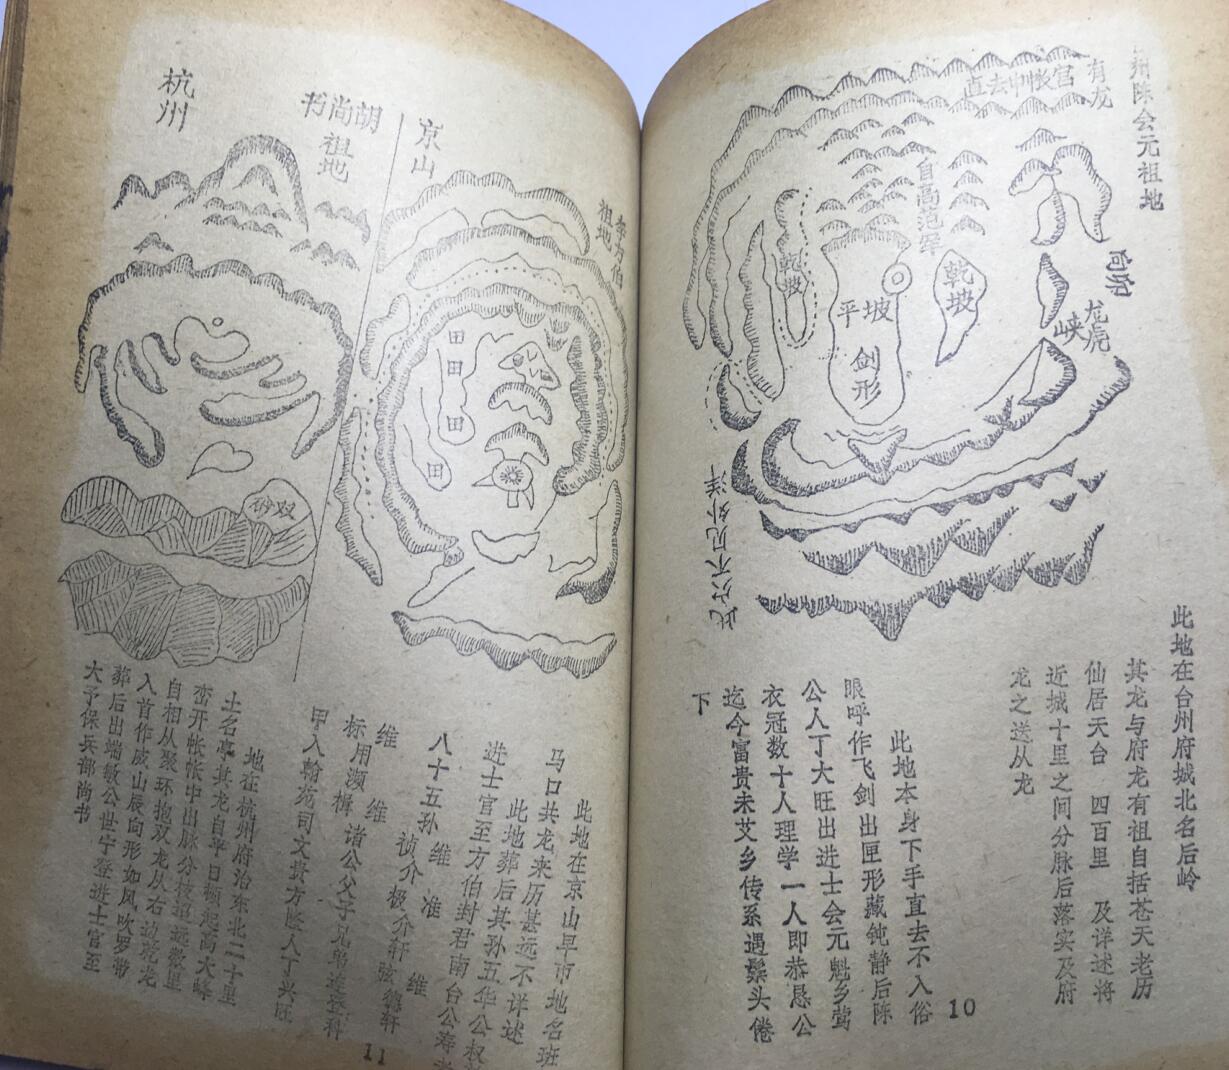 州陈会元祖地
有龙
直去中帐官
自高范军
乾坡
平坡
剑形
乾坡
龙虎
峡
此穴不见外洋
此地在台州府城北名后岭
其龙与府龙有祖自括苍天老历
仙居天台 四百里 及详述将
近城十里之间分脉后落实及府
龙之送从龙
此地本身下手直去不入俗
眼呼作飞剑出匣形藏钝静后陈
公人丁大旺出进士会元魁乡莺
衣冠数十人理学一人即恭恳公
迄今富贵未艾乡传系遇鬃头倦
下
10
京山
李方伯
祖地
田
田
田
田
此地在京山早市地名班
马口共龙来历甚远不详述
此地葬后其孙五华公权
进士官至方伯封君南台公寿
八十五孙维 准 维
祯介极介轩弦德轩
维 维
标用濒楫诸公父子兄弟连登科
甲入翰苑司文贵方
人丁兴旺
胡尚书
祖地
杭州
双砂
地在杭州府治东北二十里
土名亭其龙自平日顿起高大峰
峦开帐帐中出脉分枝
远数里
自相从聚环抱双龙从右边
龙
入首作戌山辰向形如风吹罗带
葬后出端敏公世宁登进士官至
大予保兵部尚书
11